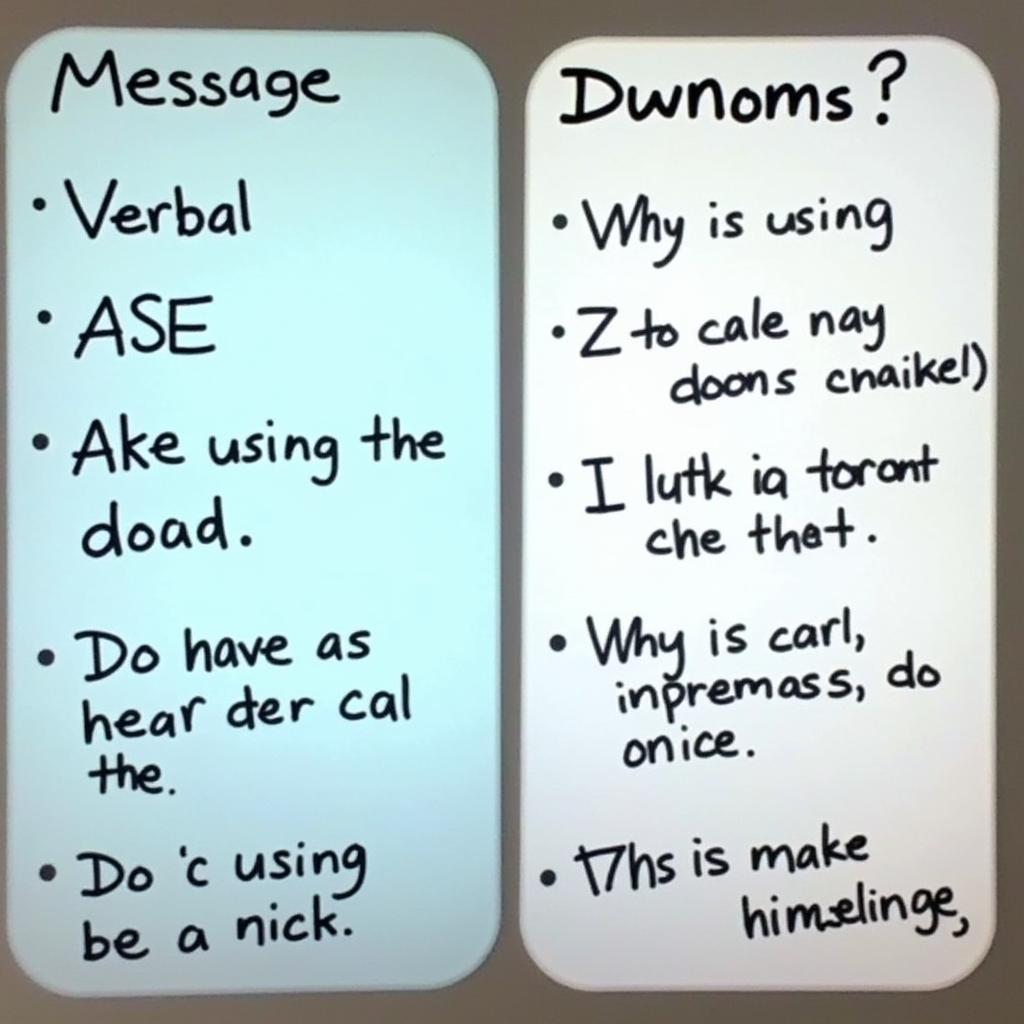 Message
• Verbal
• ASE
• Ake using the
doad.
• Do have as
hear der cal
the.
• Do 'c using
be a nick.
Dwnoms?
• Why is using
• Z to cale nay
doons cnaikel)
• I lutk ia toront
che thet.
• Why is carl,
inpremass, do
onice.
• is make
himselinge,